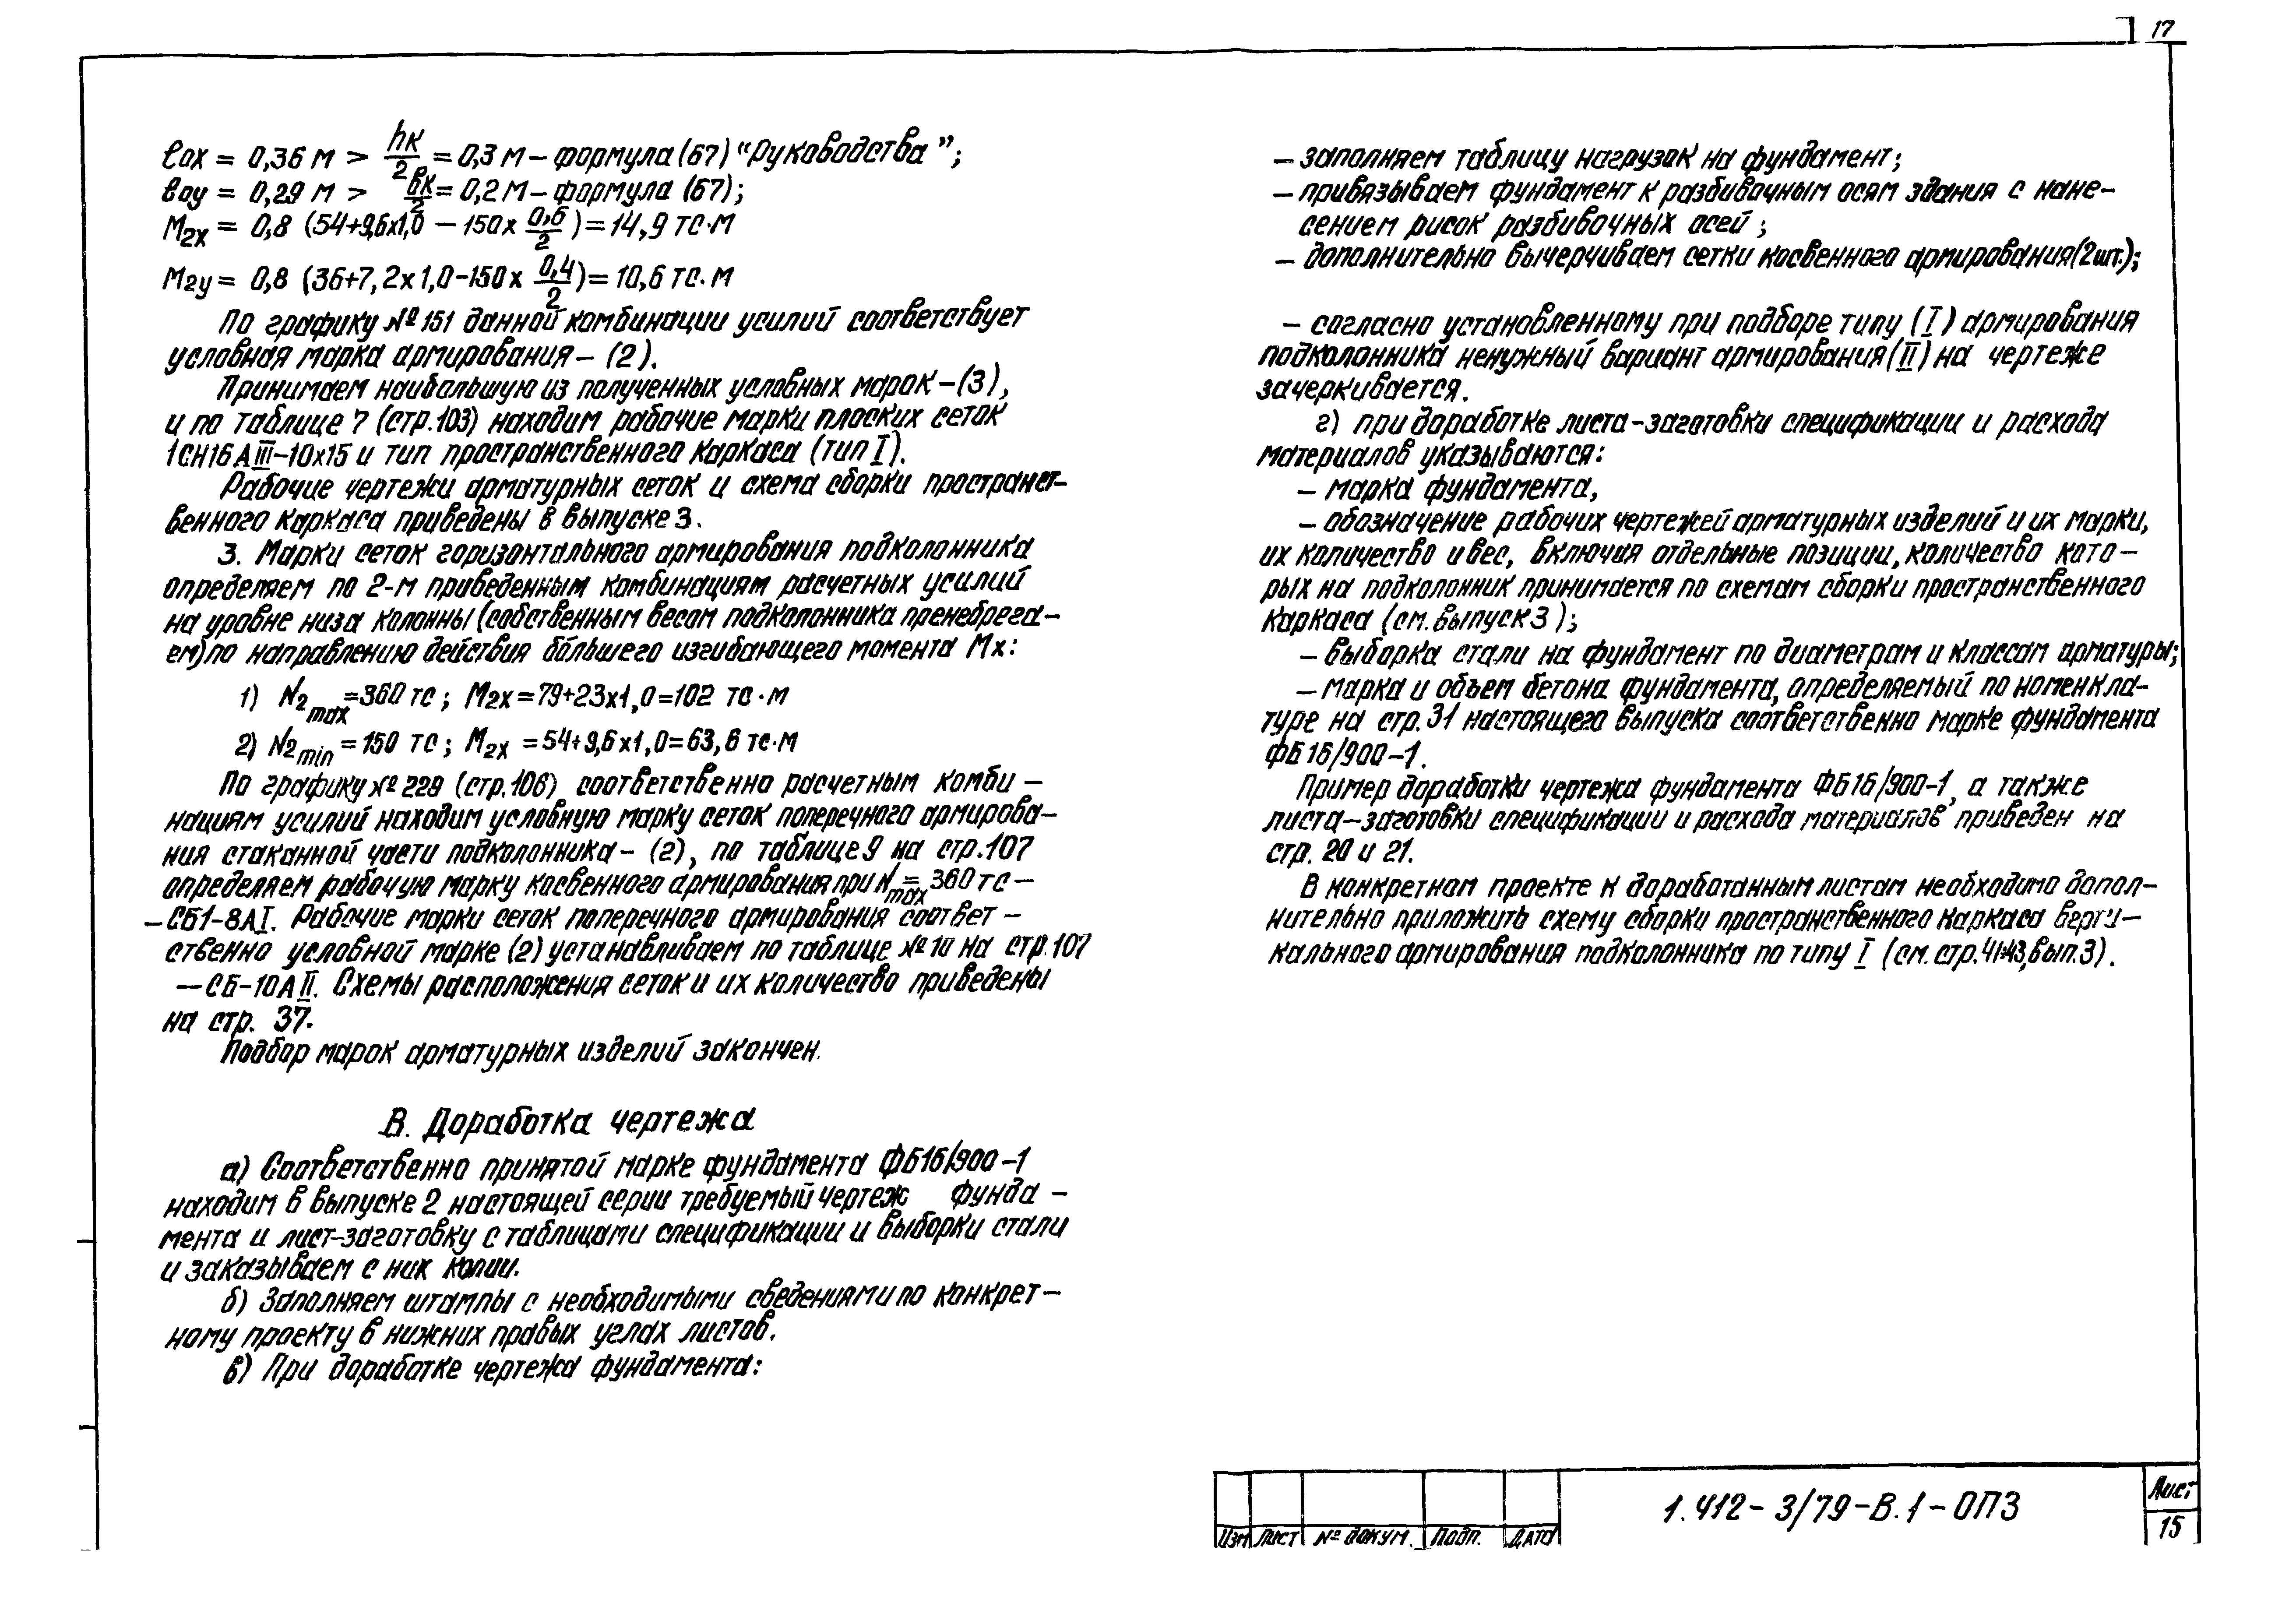 17
eox = 0,36 м > hк/2 = 0,3 м – формула (67) "Руководства";
eоy = 0,29 м > bк/2 = 0,2 м – формула (67);
M2x = 0,8 (54+9,6х1,0 – 150х 0,6/2) = 14,9 тс·м
M2y = 0,8 (36+7,2х1,0-150х 0,4/2) = 10,6 тс·м
По графику №151 данной комбинации усилий соответствует
условная марка армирования – (2).
Принимаем наибольшую из полученных условных марок – (3),
и по таблице 7 (стр.103) находим рабочие марки плоских сеток
1СН16АIII–10х15 и тип пространственного каркаса (тип I).
Рабочие чертежи арматурных сеток и схема сборки пространст-
венного каркаса приведены в выпуске 3.
3. Марки сеток горизонтального армирования подколонника
определяем по 2-м приведенным комбинациям расчетных усилий
на уровне низа колонны (собственным весом подколонника пренебрега-
ем) по направлению действия бо́льшего изгибающего момента Мх:
1) N2max = 360 тс; M2x = 79+23х1,0 = 102 тс·м
2) N2min = 150 тс; M2x = 54+9,6х1,0 = 63,6 тс·м
По графику № 229 (стр.106) соответственно расчетным комби –
нациям усилий находим условную марку сеток поперечного армирова–
ния стаканной части подколонника – (2), по таблице 9 на стр.107
определяем рабочую марку косвенного армирования при Nmax = 360 тс –
– СБ1-8АI. Рабочие марки сеток поперечного армирования соответ –
ственно условной марке (2) устанавливаем по таблице №10 на стр.107
– СБ-10АII. Схемы расположения сеток и их количество приведены
на стр. 37.
Подбор марок арматурных изделий закончен.
В. Доработка чертежа
а) Соответственно принятой марке фундамента ФБ16/900-1
находим в выпуске 2 настоящей серии требуемый чертеж фунда –
мента и лист-заготовку с таблицами спецификации и выборки стали
и заказываем с них копии.
б) Заполняем штампы с необходимыми сведениями по конкрет –
ному проекту в нижних правых углах листов.
в) При доработке чертежа фундамента:
– заполняем таблицу нагрузок на фундамент;
– привязываем фундамент к разбивочным осям здания с нане-
сением рисок разбивочных осей;
– дополнительно вычерчиваем сетки косвенного армирования (2шт.);
– согласно установленному при подборе типу (I) армирования
подколонника ненужный вариант армирования (II) на чертеже
зачеркивается.
г) при доработке листа-заготовки спецификации и расхода
материалов указываются:
– марка фундамента,
– обозначение рабочих чертежей арматурных изделий и их марки,
их количество и вес, включая отдельные позиции, количество кото –
рых на подколонник принимается по схемам сборки пространственного
каркаса (см. выпуск 3);
– выборка стали на фундамент по диаметрам и классам арматуры;
– марка и объем бетона фундамента, определяемый по номенкла-
туре на стр.31 настоящего выпуска соответственно марке фундамента
ФБ16/900-1.
Пример доработки чертежа фундамента ФБ16/900-1, а также
листа-заготовки спецификации и расхода материалов приведен на
стр. 20 и 21.
В конкретном проекте к доработанным листам необходимо допол-
нительно приложить схему сборки пространственного каркаса верти –
кального армирования подколонника по типу I (см. стр.41÷43, вып.3).
Изм Лист № докум. Подп. Дата
1.412-3/79-В.1-ОПЗ
Лист
15